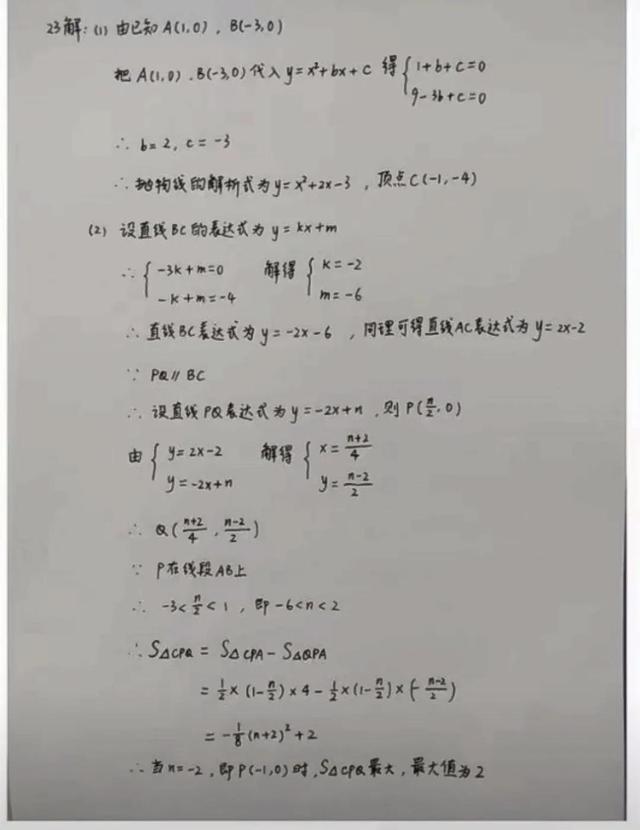 23解：(1) 由已知A(1,0)，B(-3,0)
把A(1,0)、B(-3,0)代入y=x²+bx+c 得{1+b+c=0
9-3b+c=0
∴ b=2, c=-3
∴ 抛物线的解析式为y=x²+2x-3，顶点C(-1,-4)
(2) 设直线BC的表达式为y=kx+m
∴ {-3k+m=0 解得{k=-2
-k+m=-4 m=-6
∴ 直线BC表达式为y=-2x-6，同理可得直线AC表达式为y=2x-2
∵ PQ∥BC
∴ 设直线PQ表达式为y=-2x+n，则P(n/2,0)
由{y=2x-2 解得{x=(n+2)/4
y=-2x+n y=(n-2)/2
∴ Q((n+2)/4,(n-2)/2)
∵ P在线段AB上
∴ -3<n/2<1，即-6<n<2
∴ S△CPQ=S△CPA-S△QPA
=1/2×(1-n/2)×4-1/2×(1-n/2)×(-(n-2)/2)
=-1/8(n+2)²+2
∴ 当n=-2，即P(-1,0)时，S△CPQ最大，最大值为2